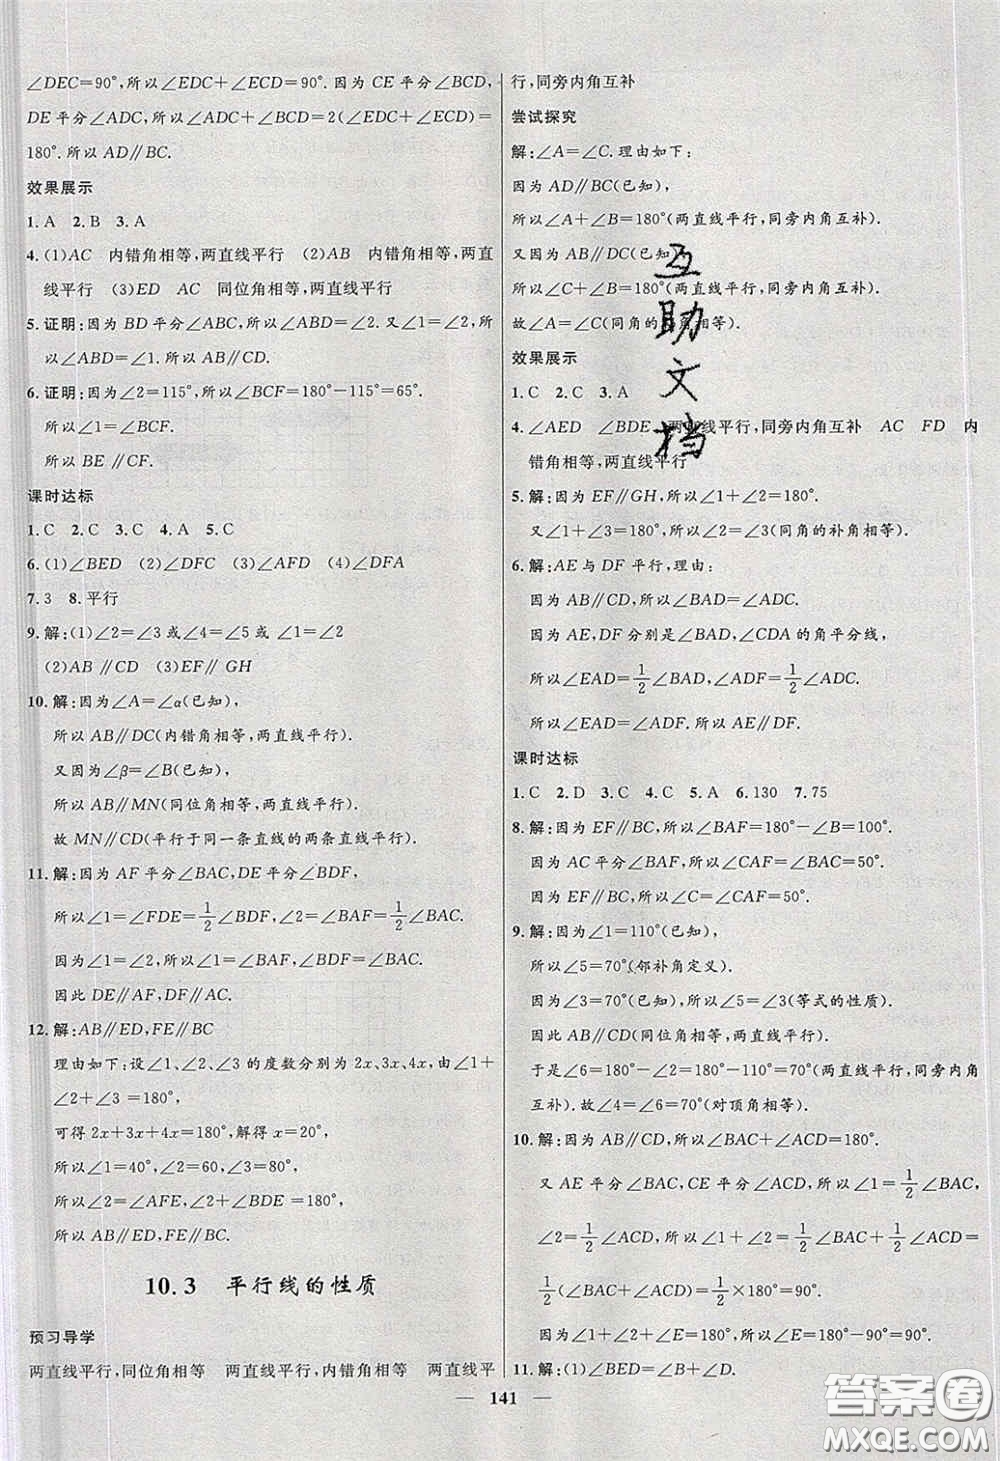 ∠DEC=90°,所以∠EDC+∠ECD=90°. 因为 CE 平分∠BCD,
DE 平分∠ADC,所以∠ADC+∠BCD=2(∠EDC+∠ECD)=
180°. 所以 AD∥BC.
效果展示
1. A 2. B 3. A
4. (1)AC 内错角相等,两直线平行 (2)AB 内错角相等,两直
线平行 (3)ED AC 同位角相等,两直线平行
5. 证明:因为 BD 平分∠ABC,所以∠ABD=∠2. 又∠1=∠2,所
以∠ABD=∠1. 所以 AB∥CD.
6. 证明:因为∠2=115°,所以∠BCF=180°-115°=65°.
所以∠1=∠BCF.
所以 BE∥CF.
课时达标
1. C 2. C 3. C 4. A 5. C
6. (1)∠BED (2)∠DFC (3)∠AFD (4)∠DFA
7. 3 8. 平行
9. 解:(1)∠2=∠3 或∠4=∠5 或 ∠1=∠2
(2)AB∥CD (3)EF∥GH
10. 解:因为∠A=∠α(已知),
所以 AB∥DC(内错角相等,两直线平行).
又因为∠β=∠B(已知),
所以 AB∥MN(同位角相等,两直线平行).
故 MN∥CD(平行于同一条直线的两条直线平行).
11. 解:因为 AF 平分∠BAC,DE 平分∠BDF,
所以∠1=∠FDE=1/2∠BDF,∠2=∠BAF=1/2∠BAC.
因为∠1=∠2,所以∠1=∠BAF,∠BDF=∠BAC.
因此 DE∥AF,DF∥AC.
12. 解:AB∥ED,FE∥BC
理由如下:设∠1、∠2、∠3 的度数分别为 2x,3x,4x,由∠1+
∠2+∠3=180°,
可得 2x+3x+4x=180°,解得 x=20°,
所以∠1=40°,∠2=60°,∠3=80°,
所以∠2=∠AFE,∠2+∠BDE=180°,
所以 AB∥ED,FE∥BC.
10.3 平行线的性质
预习导学
两直线平行,同位角相等 两直线平行,内错角相等 两直线平
行,同旁内角互补
尝试探究
解:∠A=∠C. 理由如下:
因为 AD∥BC(已知),
所以∠A+∠B=180°(两直线平行,同旁内角互补).
又因为 AB∥DC(已知
所以∠C+∠B=180°(两直线平行,同旁内角互补).
故∠A=∠C(同角的补角相等).
效果展示
1. C 2. C 3. A
4. ∠AED ∠BDE 两直线平行,同旁内角互补 AC FD 内
错角相等,两直线平行
5. 解:因为 EF∥GH,所以∠1+∠2=180°.
又∠1+∠3=180°,所以∠2=∠3(同角的补角相等).
6. 解:AE 与 DF 平行,理由:
因为 AB∥CD,所以∠BAD=∠ADC.
因为 AE,DF 分别是∠BAD,∠CDA 的角平分线,
所以∠EAD=1/2∠BAD,∠ADF=1/2∠ADC.
所以∠EAD=∠ADF,所以 AE∥DF.
课时达标
1. C 2. D 3. C 4. C 5. A 6. 130 7. 75
8. 解:因为 EF∥BC,所以∠BAF=180°-∠B=100°.
因为 AC 平分∠BAF,所以∠CAF=1/2∠BAC=50°.
因为 EF∥BC,所以∠C=∠CAF=50°.
9. 解:因为∠1=110°(已知),
所以∠5=70°(邻补角定义).
因为∠3=70°(已知),所以∠5=∠3(等式的性质).
因此 AB∥CD(同位角相等,两直线平行).
于是∠6=180°-∠2=180°-110°=70°(两直线平行,同旁内角
互补). 故∠4=∠6=70°(对顶角相等).
10. 解:因为 AB∥CD,所以∠BAC+∠ACD=180°.
又 AE 平分∠BAC,CE 平分∠ACD,所以∠1=1/2∠BAC,
∠2=1/2∠ACD,所以∠1+∠2=1/2∠BAC+1/2∠ACD=
1/2(∠BAC+∠ACD)=1/2×180°=90°.
因为∠1+∠2+∠E=180°,所以∠E=90°.
11. 解:(1)∠BED=∠B+∠D.
— 141 —
互助文档
答案圈
MXQE.COM